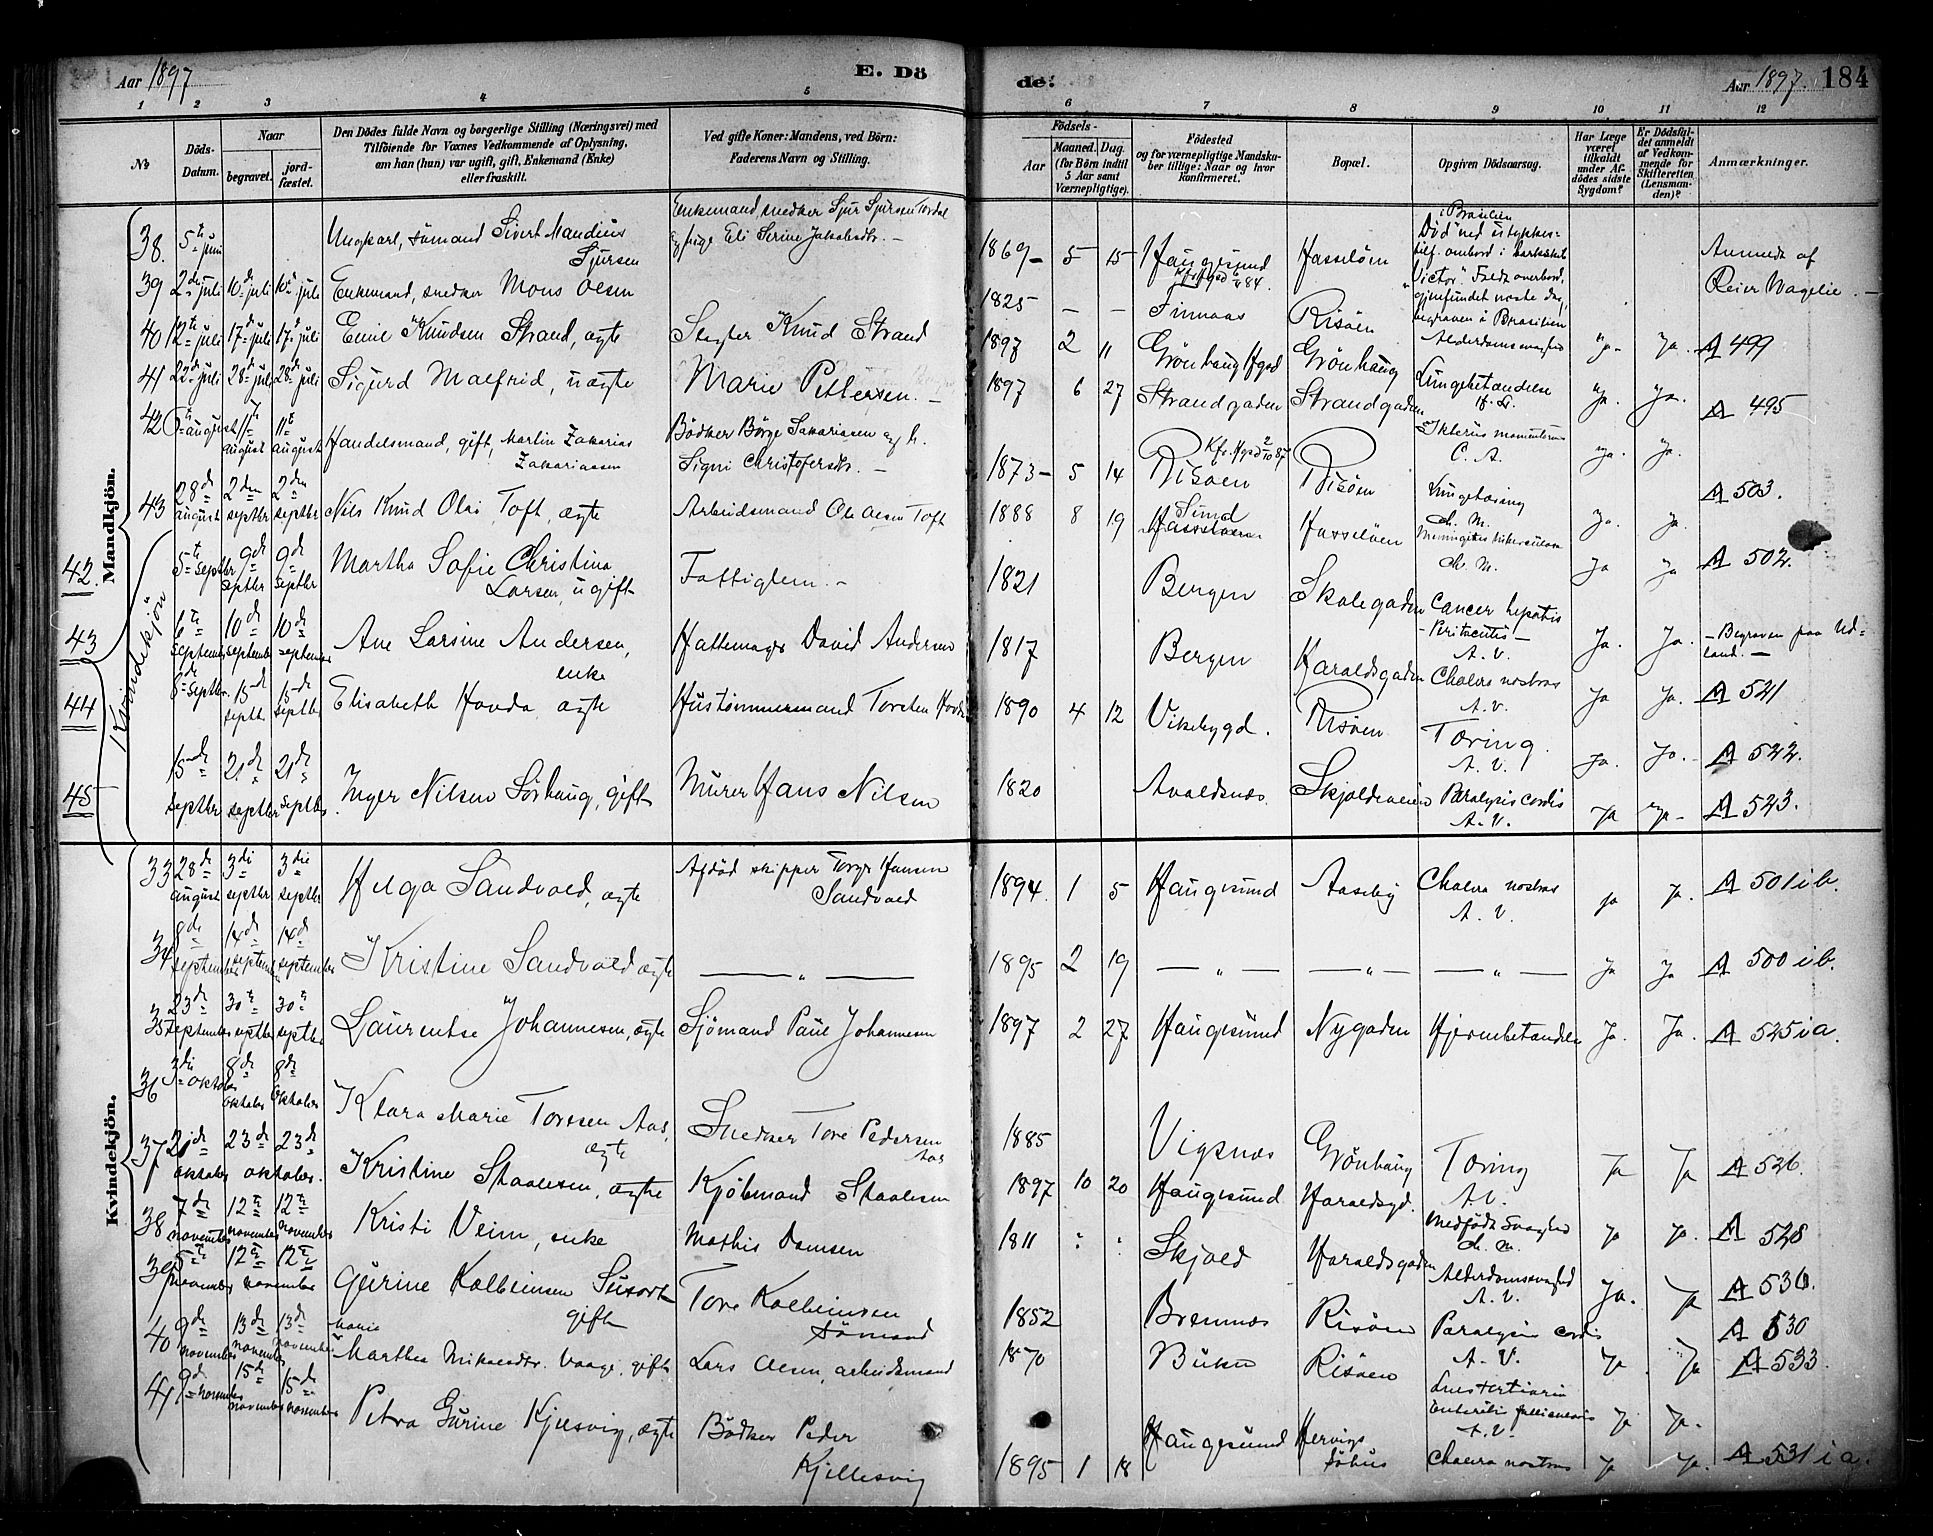 Aar 1897
E. Döde:
Aar 1897. 184
1 2 3 4 5 6 7 8 9 10 11 12
No
Döds-Datum.
Naar
begravet.
jordfæstet.
Den Dödes fulde Navn og borgerlige Stilling (Næringsvei) med
Tilföiende for Voxnes Vedkommende af Oplysning,
om han (hun) var ugift, gift, Enkemand (Enke)
eller fraskilt.
Ved gifte Koner: Mandens, ved Börn:
Faderens Navn og Stilling.
Födsels-
Aar
Maaned. Dag.
(for Börn indtil
5 Aar samt
Værnepligtige).
Födested
og for værnepligtige Mandskaber tillige: Naar og hvor
konfirmeret.
Bopæl.
Opgiven Dödsaarsag.
Har Læge været tilkaldt under Afdödes sidste Sygdom?
Er Dödsfaldet anmeldt af Vedkommende for Skifteretten (Lensmanden)?
Anmærkninger.
Mandkjön.
38. 5te juni Ungkarl, sømand Sivert Mandius Sjursen
Enkemand, snedker Sjur Sjursen Tordal og hige Eli Serine Jakobsdtr. -
1869 - 5 15 Haugesund Hasseløen
i Brasilien Død ved ulykkestilf. ombord i barkskib "Victor". Faldt overbord, gjenfundet næste dag, begraven i Brasilien
Anmeldt af Reier Wagelie. -
39 2den juli 10de juli 10de juli Enkemand, snedker Mons Olsen
1825 - - - Finnaas Risøen Alderdomssvaghed Ja. Ja. A 499
40 12te juli 17de juli 17de juli Emil Knudsen Strand, ægte Slagter Knud Strand
1897 2 11 Grönhaug Hgsd Grönhaug Lungebetændelse Ja. Ja. A 495
41 22de juli 28de juli 28de juli Sigurd Malfrid, uægte Marie Pettersen. -
1897 6 27 Strandgaden Strandgaden C. A. Ja. Ja.
42 6te august 11te august 11te august Handelsmand, gift, Martin Zakarias Zakariassen
Bødker Börge Sakariasen og h. Signi Christofersdtr. -
1873 - 5 14 Risøen Risøen Lungetæring Ch. M. Ja. Ja. A 503.
43 28de august 2den septbr 2den septbr Nils Knud Olai Toft, ægte Arbeidsmand Ole Olsen Toft
1888 8 19 Sund Hasseløen Hasseløen Meningitis tuberculosa Ch. M. Ja Ja A 502.
Kvindekjön
42. 5te septbr 9de septbr 9de septbr Martha Sofie Christina Larsen, ugift Fattiglem. -
1821 Bergen Skolegaden Cancer hepatis - Peritonitis - A. V. Ja. Ja. - Begraven paa Udland. -
43 6te september 10de september 10de september Ane Larsine Andersen, enke Hattemager David Andersen
1817 Bergen Haraldsgaden Cholera nostras A. V. Ja Ja. A 521
44 septbr. 15de septbr 15de septbr Elisabeth Hovda, ægte Hustømmermand Torsten Hovda
1890 4 12 Vikebygd. Risøen Tæring. A. V. Ja. Ja. - A 522.
45 15de septbr 21de septbr 21de septbr Inger Nilsen Sörhaug, gift Murer Hans Nilsen
1820 Avaldsnes. Skjoldeveien Paralysis cordis A. V. Ja Ja - A 523.
Kvindekjön.
33 28de august 3die septbr 3die septbr Helga Sandvold, ægte Afdød skipper Torger Hansen Sandvold
1894. 1 5 Haugesund Aaseby Cholera nostras A. V. Ja Ja. A 501 i b.
34 8de september 14de september 14de september Kristine Sandvold ægte — „ —
1895 2 19 — „ — — „ — — „ — Ja Ja A 500 i b.
35 23de september 30te septbr 30te septbr Laurentse Johannesen, ægte Sjömand Paul Johannesen
1897 2 27 Haugesund Nygaden Hjernebetændelse Ja. Ja. A 525 i a.
36 3die oktober 8de oktober 8de oktober Klara Marie Toresen Aas, ægte Snedker Tore Pedersen Aas
1885 Vigsnæs Grönhaug Tæring A. V. Ja Ja A 526.
37 21de oktober 23de oktober. 23de Kristine Staalesen, ægte Kjöbmand Staalesen
1897 10 20 Haugesund Haraldsgd. Medfödt Svaghed Ch. M. Ja Ja. A 528
38 7de november 12te november 12te november Kristi Veim, enke Mathis Damsen
1811 : : Skjold Haraldsgaden Alderdomssvaghed A. V. Ja. Ja A 536.
39 5te november 12te november 12te Gurine Kolbeinsen Susort gift Tore Kolbeinsen Sömand
1852 Bremnes Risöen Paralysis cordis A. V. Ja Ja A 530
40 9de november 13de november 13de november Marie Martha Mikaelsdtr. Vaage, gift Lars Olsen, arbeidsmand
1870 Buken Risöen Lues tertiaria Enteritis follicularis A. V. Ja Ja. A 533.
41 9de november 15de november 15de november Petra Gurine Kjelesvig, ægte Bödker Peder Kjellesvig
1895 1 18 Haugesund Hervigs Söhus Cholera nostras Ja Ja. A 531 i a.